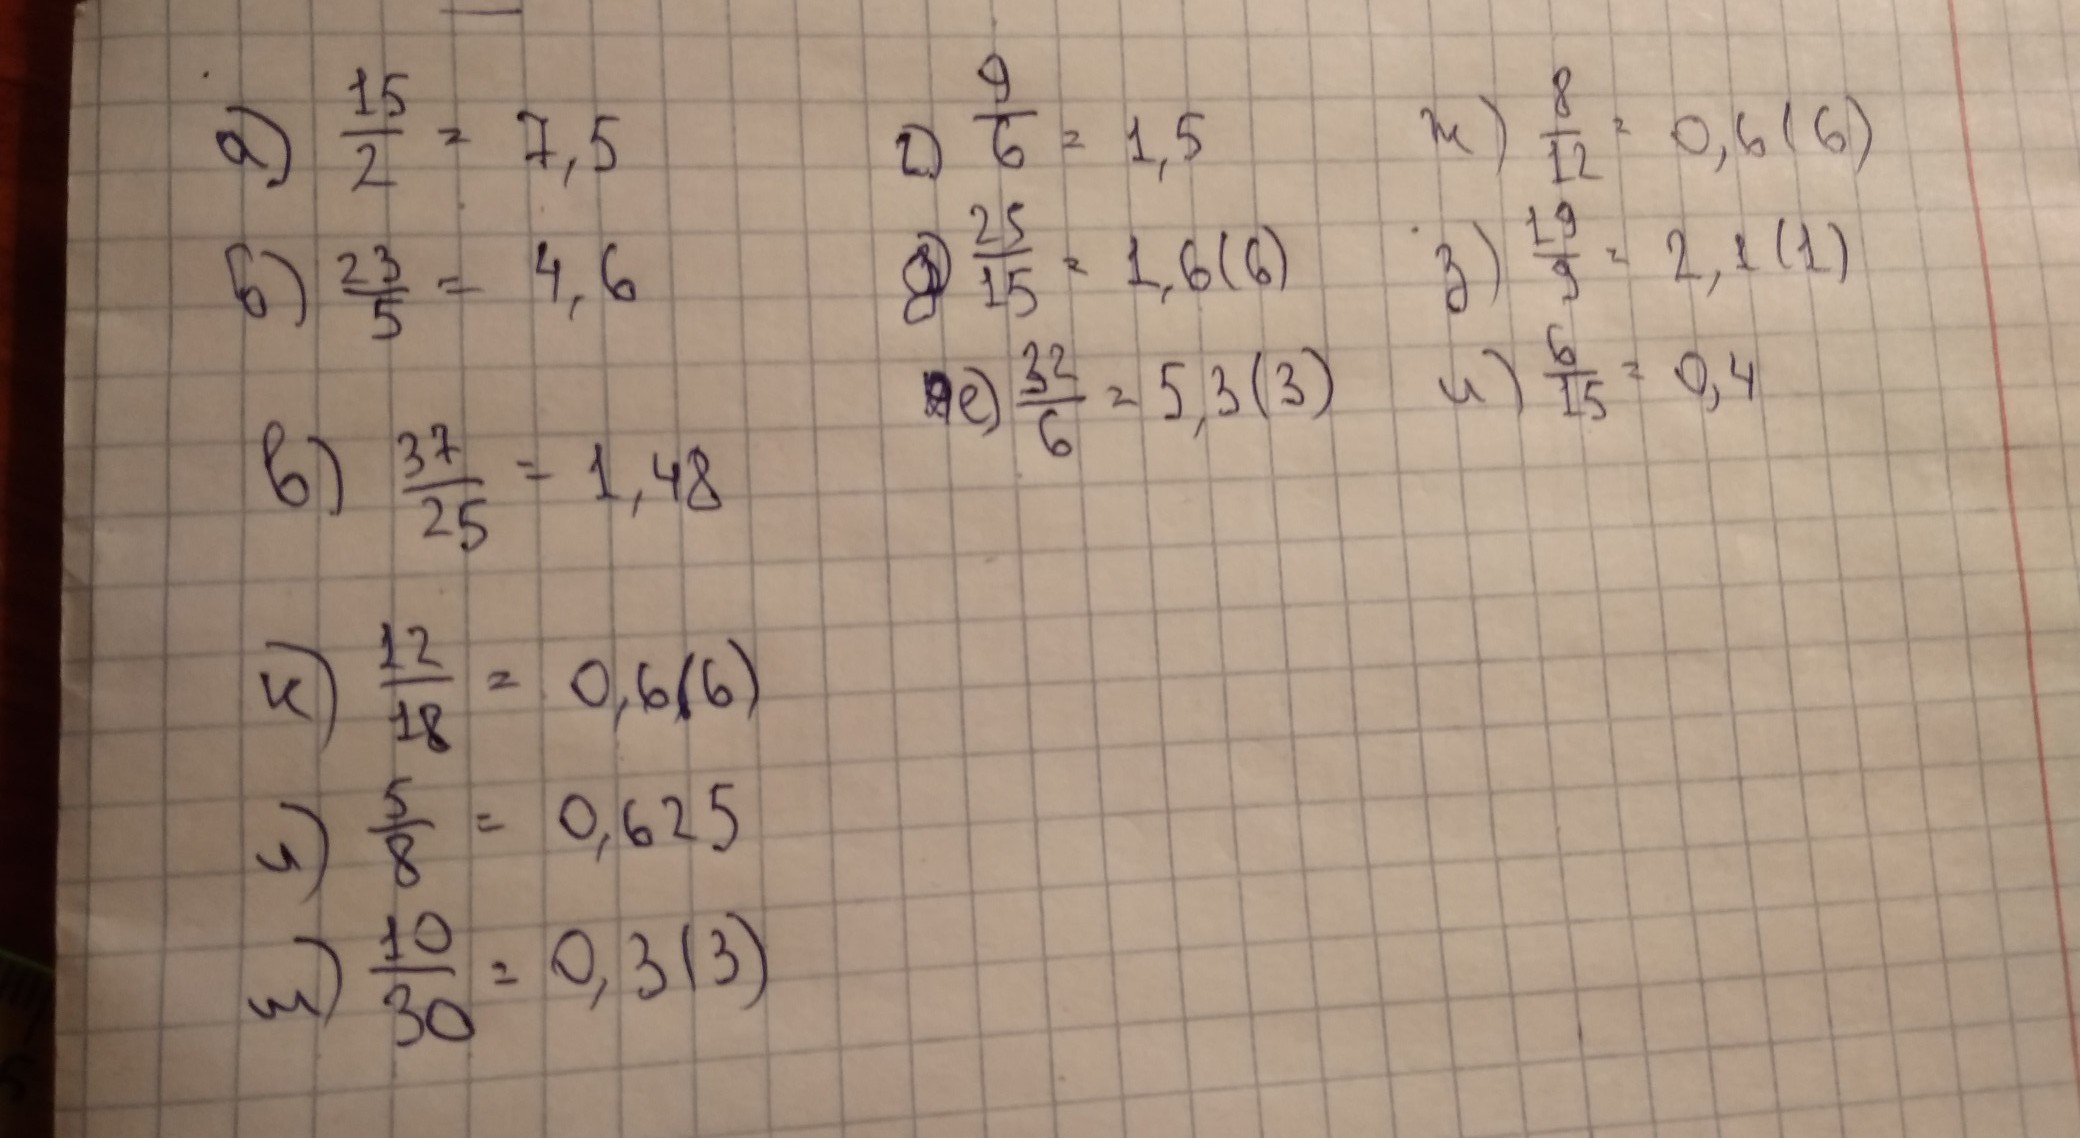 а) 15/2 = 7,5
б) 23/5 = 4,6
в) 37/25 = 1,48
г) 9/6 = 1,5
д) 25/15 = 1,6(6)
е) 32/6 = 5,3(3)
ж) 8/12 = 0,6(6)
з) 19/9 = 2,1(1)
и) 6/15 = 0,4
к) 12/18 = 0,6(6)
л) 5/8 = 0,625
м) 10/30 = 0,3(3)